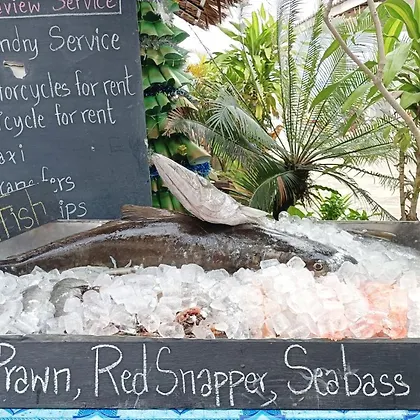 view Service
ndry Service
orcycles for rent
icycle for rent
axi
ransfers
Fish ips
Prawn, Red Snapper, Seabass